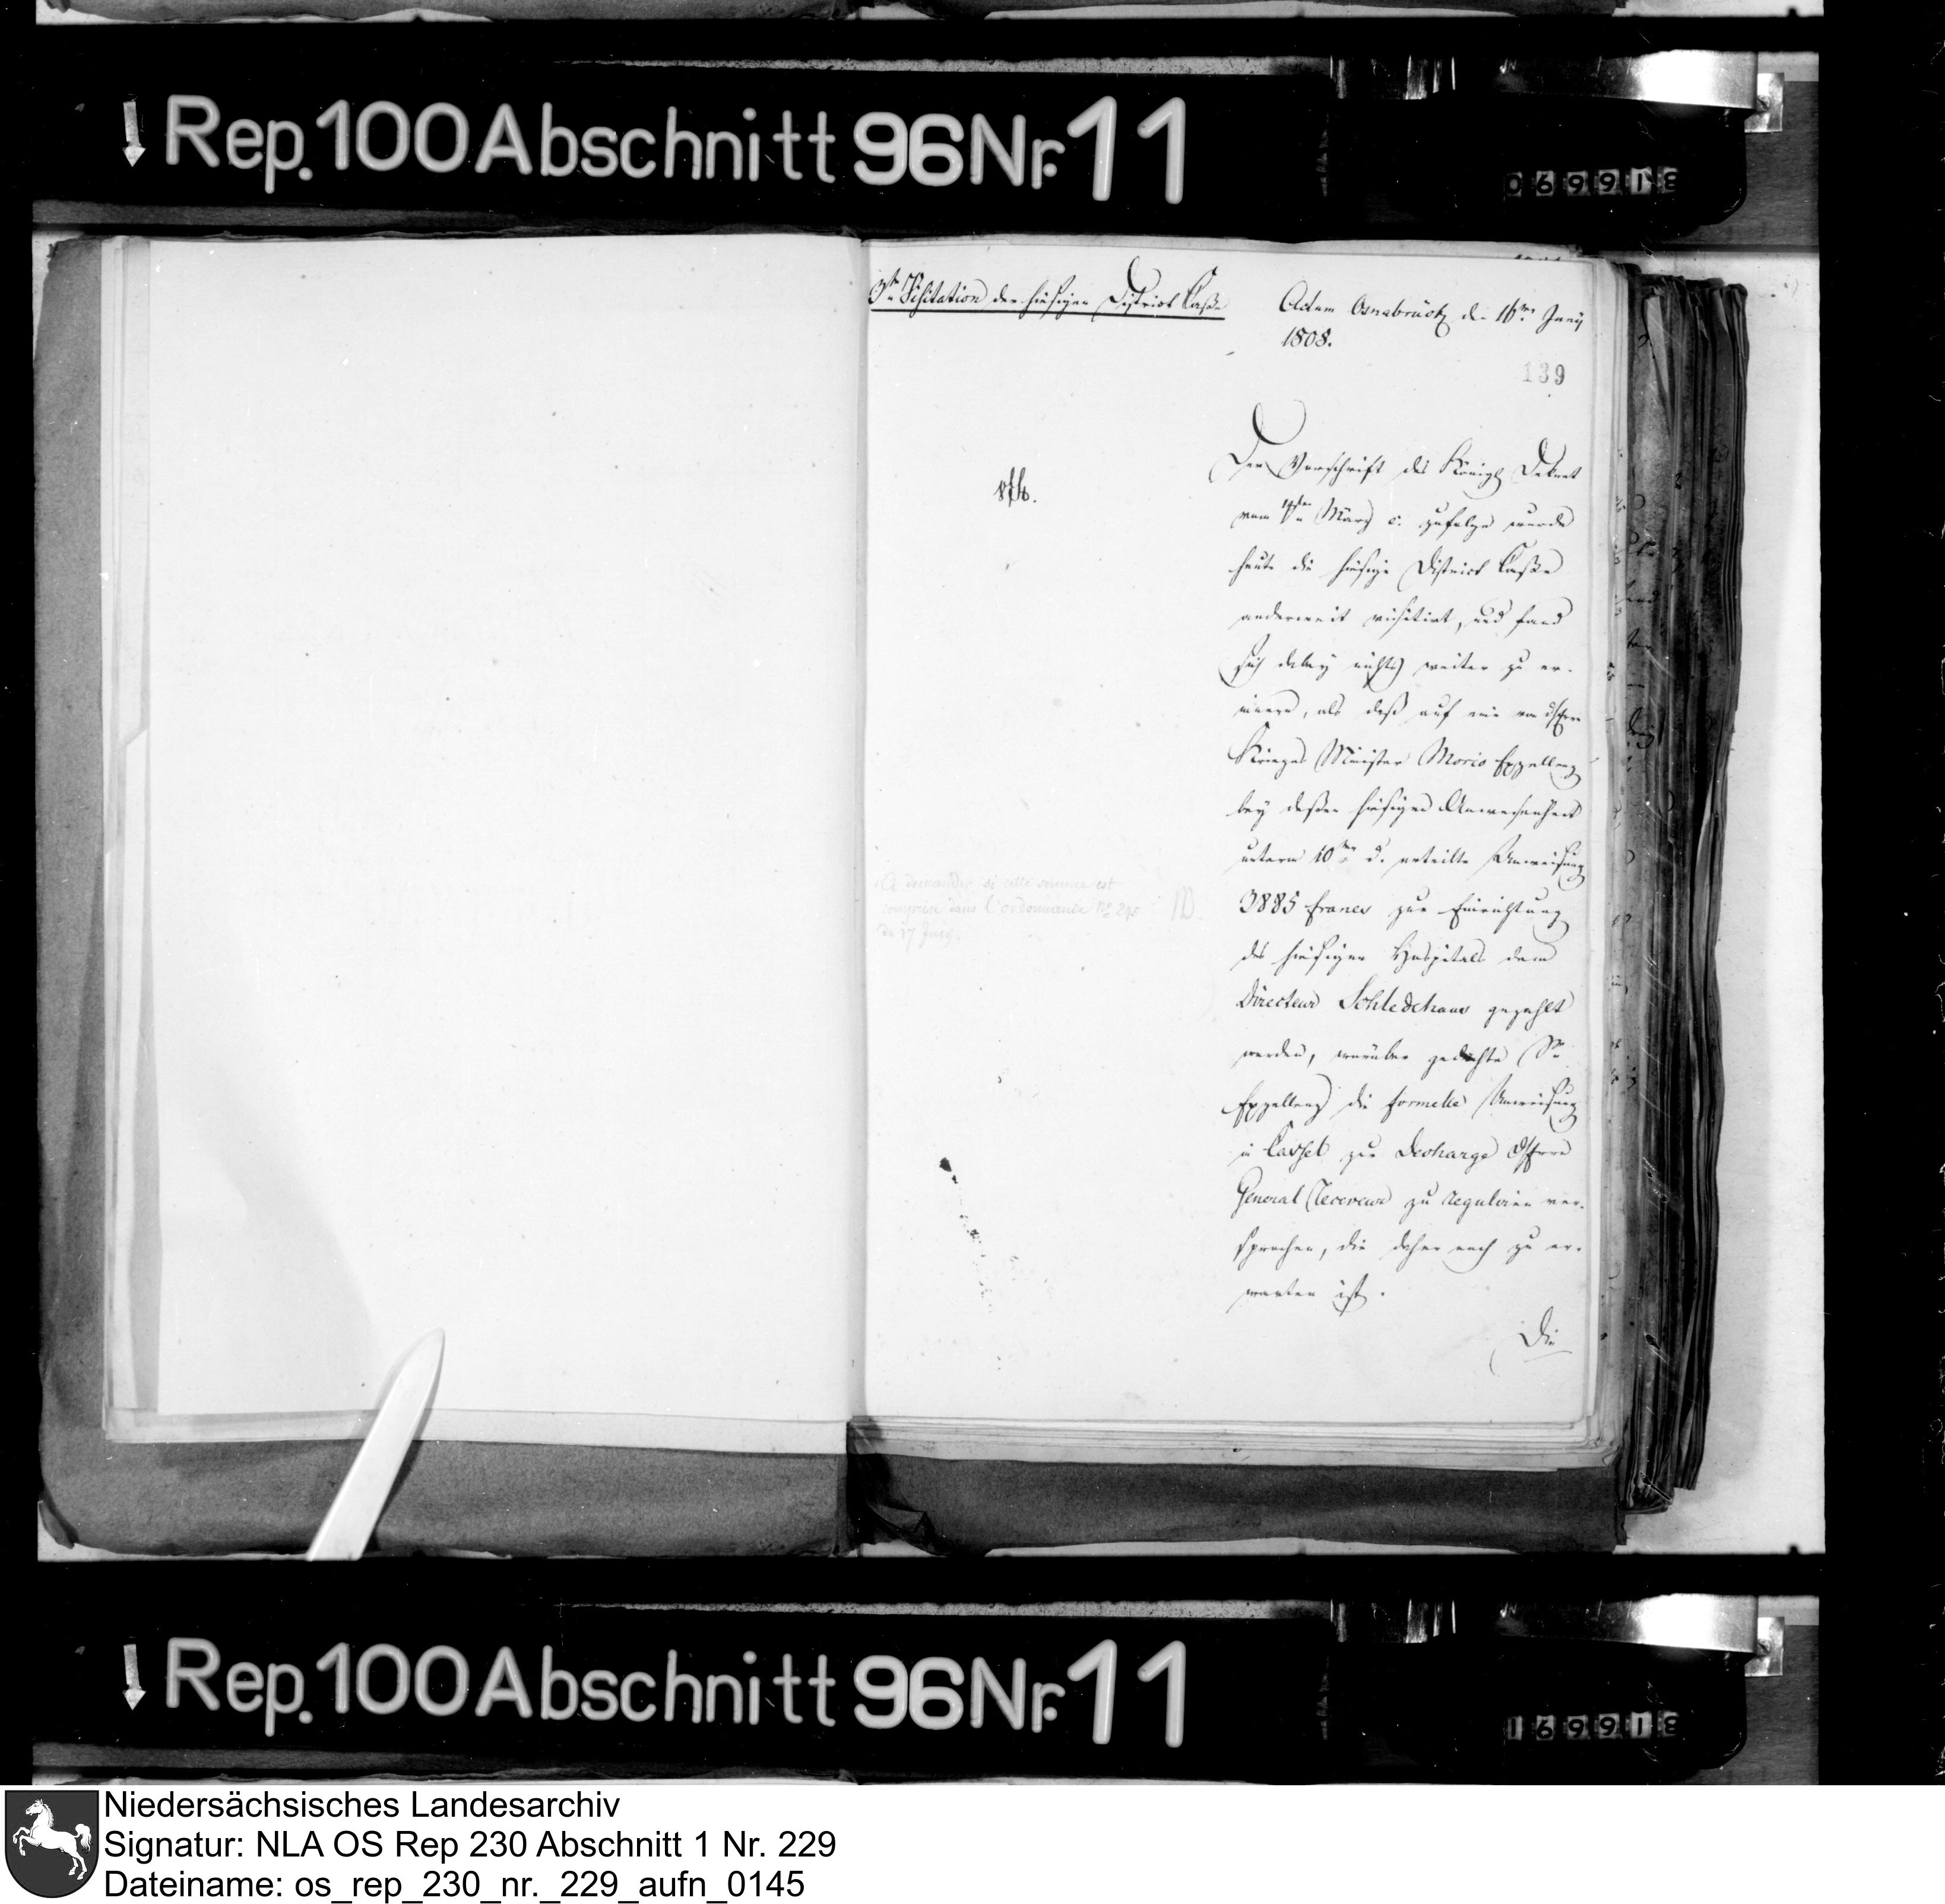 Rep. 100 Abschnitt 96 Nr. 11
069918
3te Visitation der hiesigen District Casse
Actum Osnabrück den 16ten Juny
1808.
139
Der Vorschrift des Königl. Dekret
vom März c. zufolge wurde
heute die hiesige District Casse
anderweit visitirt, und fand
sich dabey nichts weiter zu er-
innern, als daß auf eine von Herrn
Krieges Minister Morio Exzellenz
bey deßen hiesigen Anwesenheit
unterm 10ten d. erteilte Anweisung
3885 francs zur Einrichtung
des hiesigen Hospitals dem
Directeur Schledehaus gezahlt
worden, worüber gedachte Sr
Exzellenz die formelle Anweisung
in Cassel zur Decharge Herrn
General Receveur zu reguliren ver-
sprochen, die daher noch zu er-
warten ist.
Die
à demander si cette somme est
comprise dans l'ordonnance No
du 17 Juny.
Rep. 100 Abschnitt 96 Nr. 11
169918
Niedersächsisches Landesarchiv
Signatur: NLA OS Rep 230 Abschnitt 1 Nr. 229
Dateiname: os_rep_230_nr._229_aufn_0145